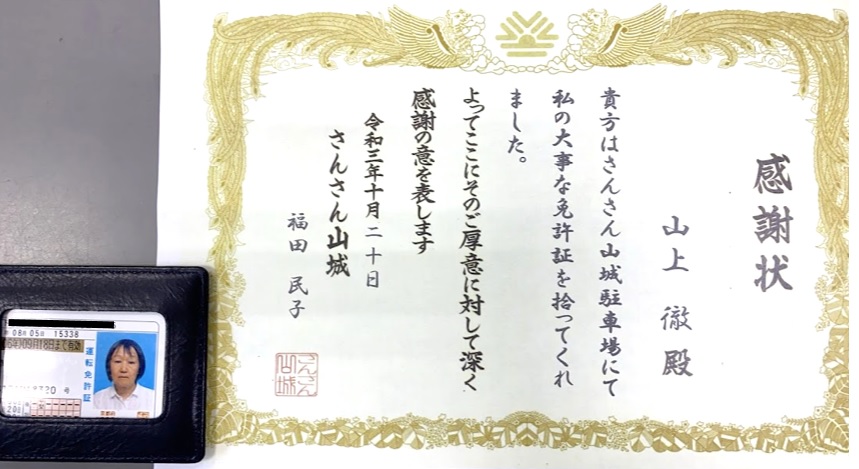 感謝状
山上 徹 殿
貴方はさんさん山城駐車場にて
私の大事な免許証を拾ってくれ
ました。
よってここにそのご厚意に対して深く
感謝の意を表します
令和三年十月二十日
さんさん山城
福田 民子
さんさん
山城
08月05日 15338
09月18日まで有効
運転免許証